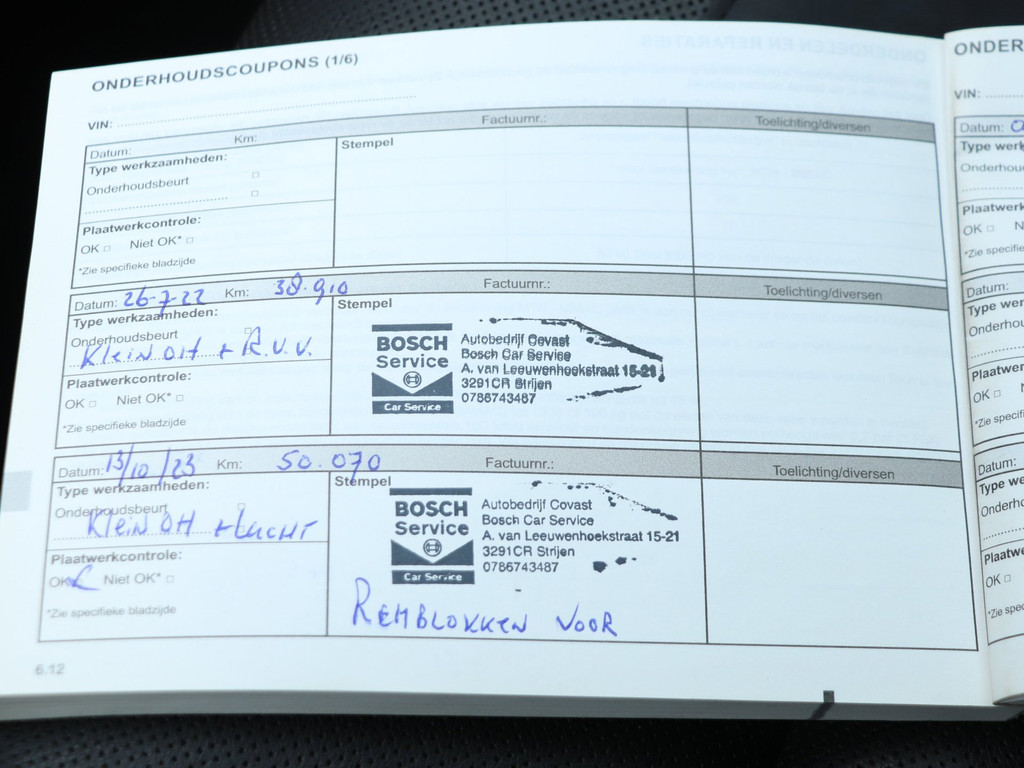 ONDERHOUDSCOUPONS (1/6)
VIN:
Datum: Km: Factuurnr.: Toelichting/diversen
Type werkzaamheden: Stempel
Onderhoudsbeurt
Plaatwerkcontrole:
OK □ Niet OK* □
*Zie specifieke bladzijde
Datum: 26-7-22 Km: 38.910 Factuurnr.: Toelichting/diversen
Type werkzaamheden: Stempel
Onderhoudsbeurt
Klein OH + R.V.V.
Plaatwerkcontrole:
OK □ Niet OK* □
*Zie specifieke bladzijde
BOSCH
Service
Car Service
Autobedrijf Covast
Bosch Car Service
A. van Leeuwenhoekstraat 15-21
3291CR Strijen
0786743487
Datum: 13/10/23 Km: 50.070 Factuurnr.: Toelichting/diversen
Type werkzaamheden: Stempel
Onderhoudsbeurt
Klein OH + Lucht
Plaatwerkcontrole:
OK Niet OK* □
*Zie specifieke bladzijde
BOSCH
Service
Car Service
Autobedrijf Covast
Bosch Car Service
A. van Leeuwenhoekstraat 15-21
3291CR Strijen
0786743487
REMBLOKKEN VOOR
6.12
ONDER
VIN:
Datum:
Type werk
Onderhou
Plaatwerk
OK □ N
*Zie specifie
Datum:
Type wer
Onderhou
Plaatwer
OK □
*Zie specif
Datum:
Type we
Onderho
Plaatw
OK □
*Zie spe